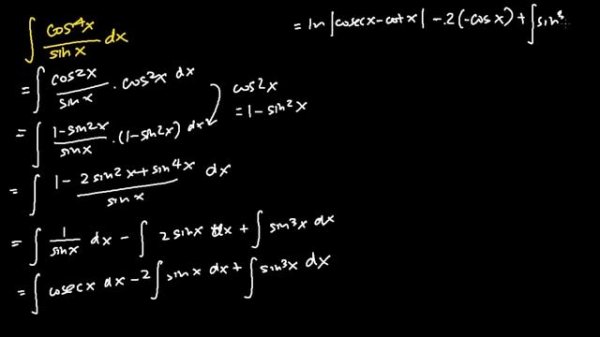 ∫ cos⁴x / sinx dx
= ∫ cos2x / sinx · cos²x dx
cos2x
= 1 - sin²x
= ∫ 1-sin2x / sinx · (1-sin2x) dx
= ∫ 1 - 2sin²x + sin⁴x / sinx dx
= ∫ 1/sinx dx - ∫ 2sinx dx + ∫ sin³x dx
= ∫ cosecx dx - 2∫ sinx dx + ∫ sin³x dx
= ln |cosecx - cotx| - 2(-cosx) + ∫ sin³